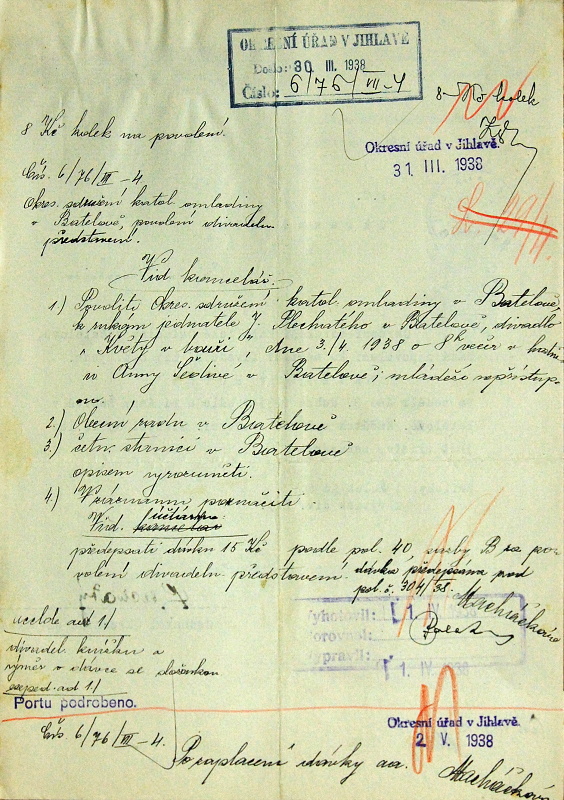 OKRESNÍ ÚŘAD V JIHLAVĚ
Došlo: 30 III. 1938
Číslo: 6/76/VII-4
8 Kč kolek
8 Kč kolek na povolení.
Okresní úřad v Jihlavě.
31. III. 1938
Čís. 6/76/VII-4
29/4
Okres. sdružení katol. omladiny
v Batelově, povolení divadeln.
představení.
Vid. kancelář.
1.) Povoliti Okres. sdružení katol. omladiny v Batelově,
k rukám jednatele J. Plechatého v Batelově, divadlo
„Květy v bouři", dne 3./4. 1938 o 8h večer v hostin-
ci Anny Sedlivé v Batelově; mládeži nepřístup-
no.
2.) Obecní radu v Batelově
3.) četn. stanici v Batelově
opisem vyrozuměti.
4.) poznačiti.
Vid. účtárna
předepsati dávku 15 Kč podle pol. 40, sazby B za po-
volení divadeln. představení. dávka předepsána pod
pol. č. 304/38. Macháčková
Vyhotovil: 1. IV.
Porovnal:
Vypravil: 1. IV. 1938
ad 1/
divadel. knížku a
výměr o dávce se složenkou
ad 1/
Portu podrobeno.
Čís. 6/76/VII-4.
Okresní úřad v Jihlavě.
2 V. 1938
Po zaplacení dávky aa. Macháčková